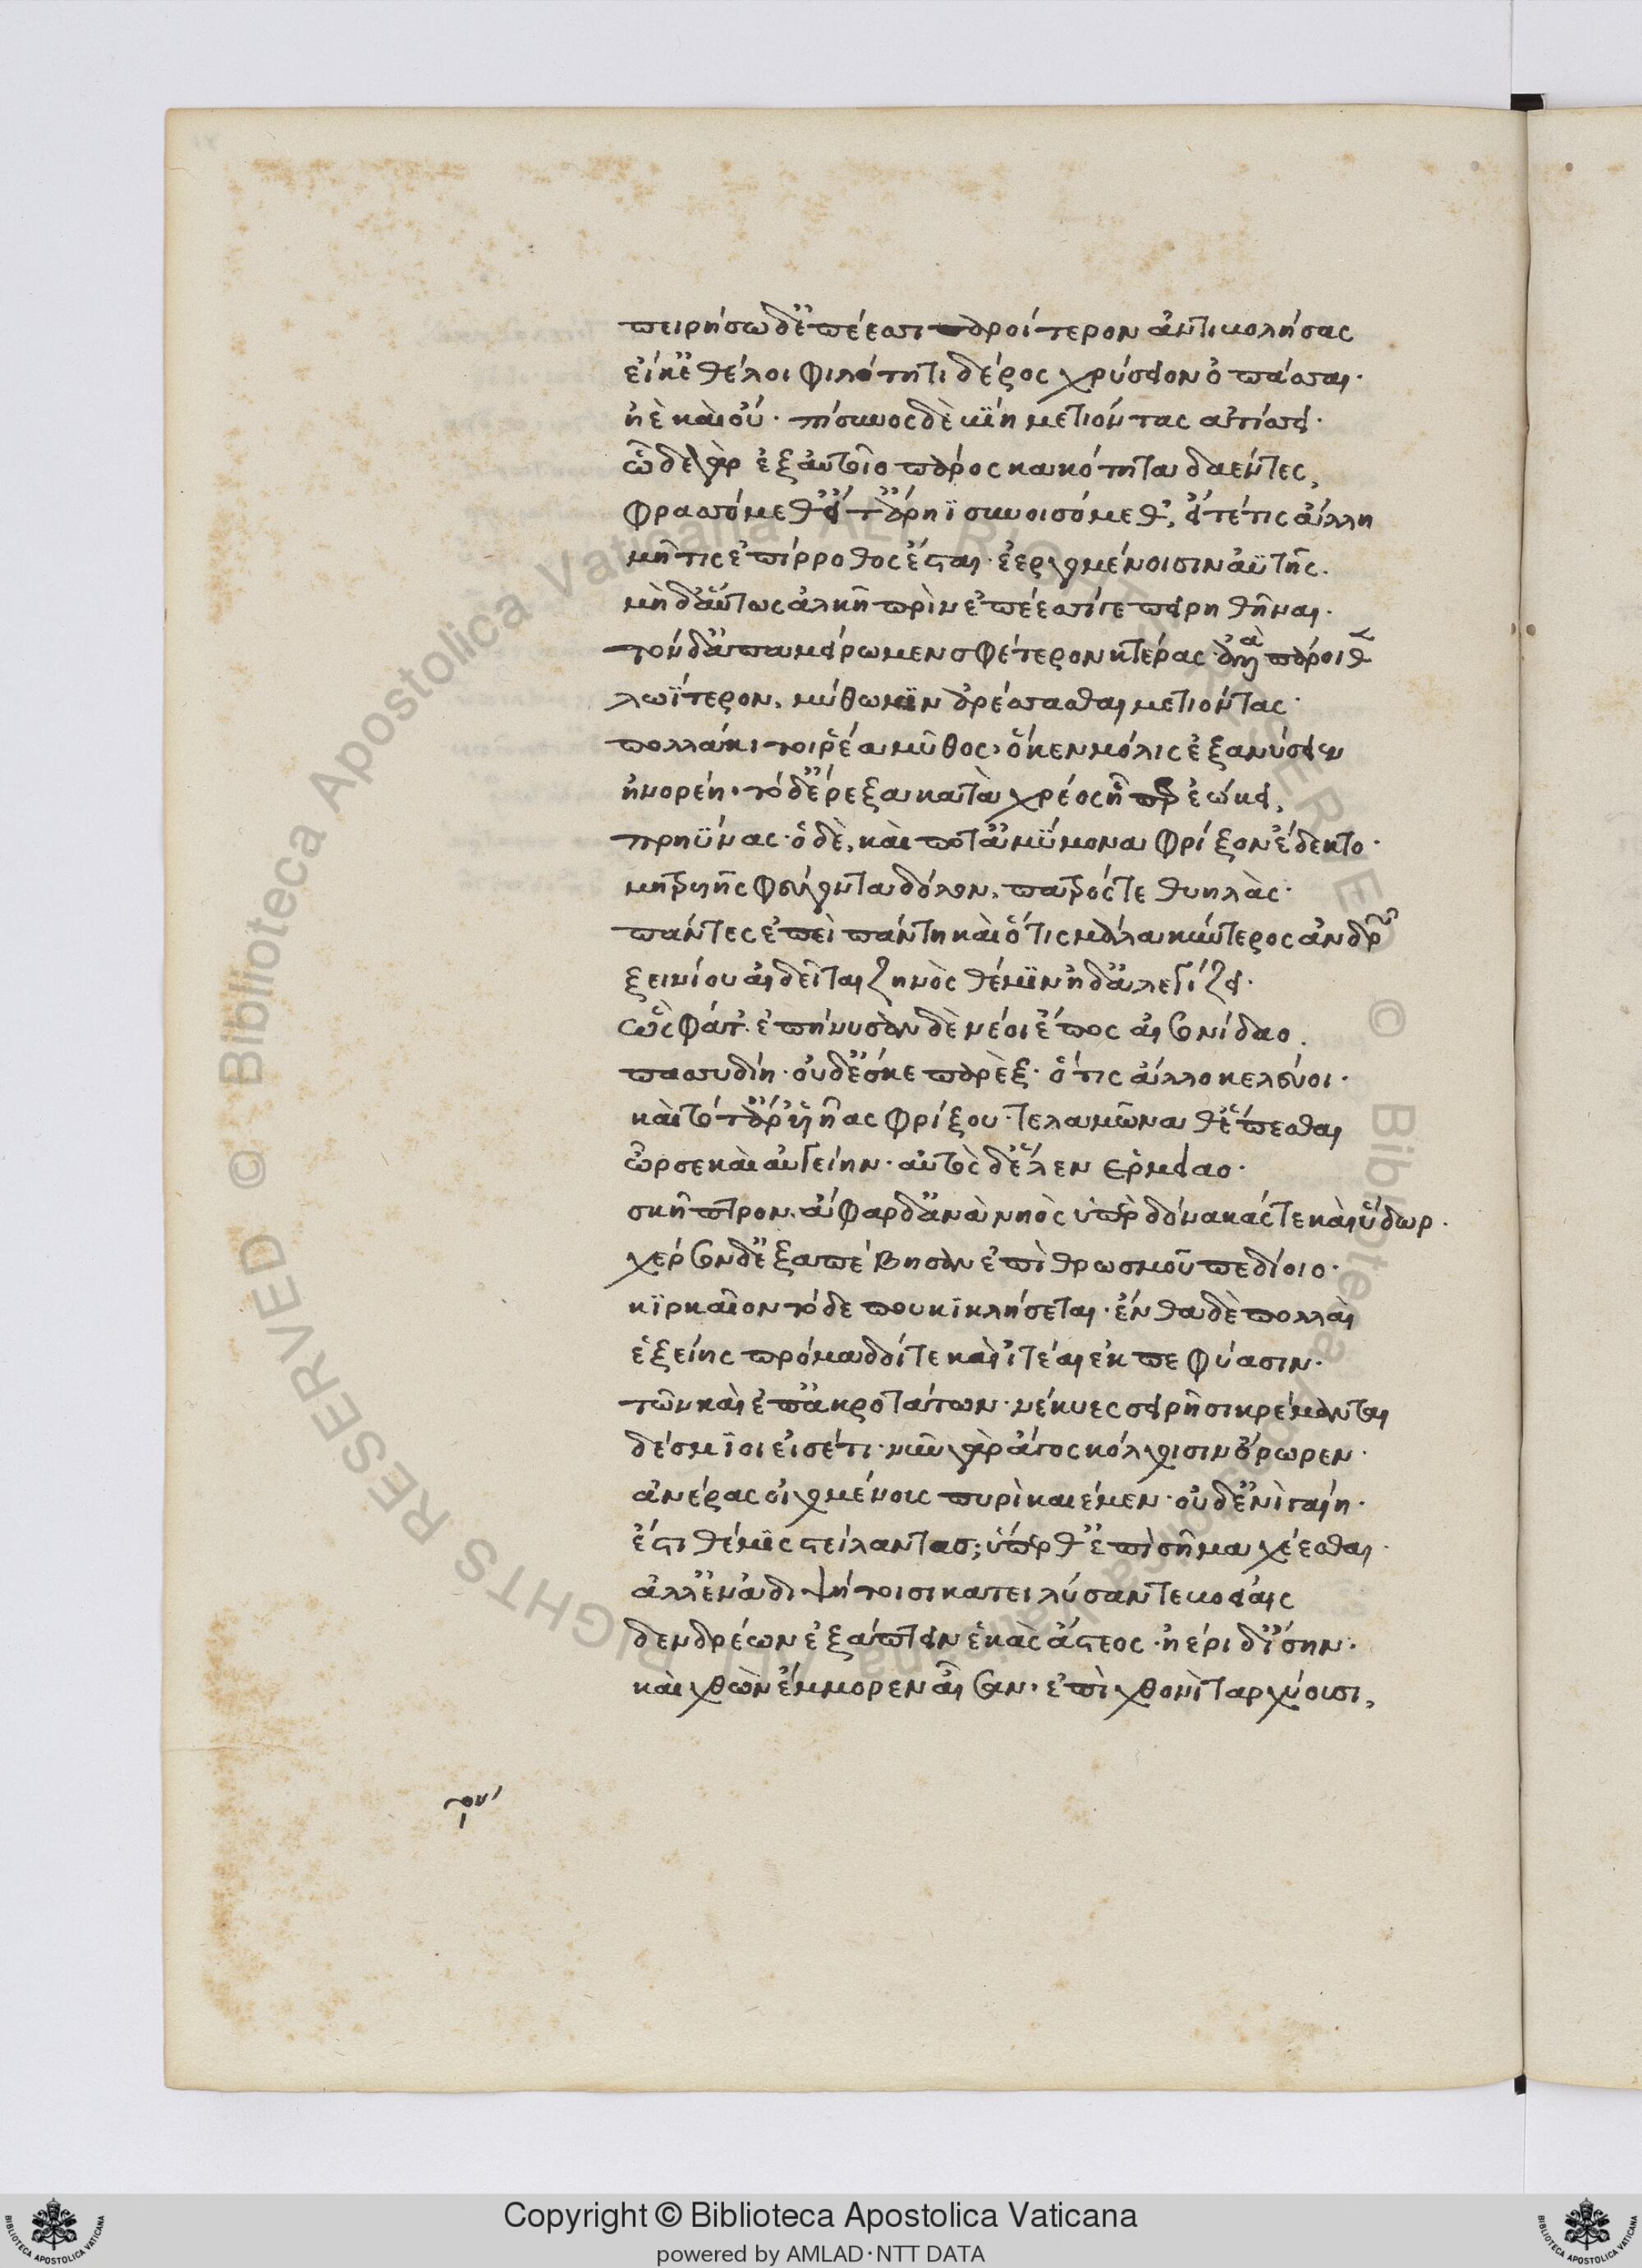 πειρήσω δ' ἐπέεσσι παροίτερον ἀντιβολήσας
εἴ κ' ἐθέλοι φιλότητι δέρος χρύσειον ὀπάσσαι·
ἠὲ καὶ οὔ· πίσυνος δὲ βίη μετιόντας ἀτίσσει·
ὧδε γὰρ ἐξ αὐτοῖο πάρος κακότητα δαέντες,
φρασσόμεθ' εἴτ' ἄρηϊ συνοισόμεθ', εἴτέ τις ἄλλη
μῆτις ἐπίρροθος ἔσται· ἐεργομένοισιν ἀϋτῆς.
μὴ δ' αὔτως ἀλκῆ πρὶν ἐπέεσσί γε πειρηθῆναι·
τόνδ' ἀπαμείρωμεν σφέτερον κτέρας· ἀλλὰ πάροιθεν
λωΐτερον, μύθω μὶν ἀρέσσασθαι μετιόντας·
πολλάκι τοι ῥέα μῦθος, ὅ κεν μόλις ἐξανύσειεν
ἠνορέη, τό δ' ἔρεξε κατὰ χρέος ᾗπερ ἐώκει,
πρηΰνας· ὁ δὲ, καὶ ποτ' ἀμύμονα φρίξον ἔδεκτο·
μητρυιῆς φεύγοντα δόλον, πατρός τε θυηλὰς·
πάντες ἐπεὶ πάντη καὶ ὅτις μάλα κύντερος ἀνδρῶν
ξεινίου αἰδεῖται ζηνὸς θέμιν ἠδ' ἀλεγίζει·
ὣς φάτ'· ἐπήνυσαν δὲ νέοι ἔπος αἰσονίδαο.
πασσυδίη· οὐδ' ἔσκε παρὲξ· ὅτις ἄλλο κελεύοι·
καὶ τότ' ἄρ' υἱῆας φρίξου· τελαμῶνα θ' ἕπεσθαι
ὦρσε καὶ αὐγείην· αὐτὸς δ' ἕλεν ἑρμείαο·
σκῆπτρον, ἄφαρ δ' ἄνα νηὸς ὑπὲρ δόνακάς τε καὶ ὕδωρ·
χέρσονδ' ἐξαπέβησαν ἐπὶ θρωσμοῦ πεδίοιο·
κίρκαιον τό δε που κικλήσεται· ἔνθα δὲ πολλαὶ
ἑξείης πρόμαδοί τε καὶ ἰτέαι ἐκπεφύασιν·
τῶν καὶ ἐπ' ἀκροτάτων· νέκυες σειρῆσι κρέμανται
δέσμιοι εἰσέτι· νῦν γὰρ ἄγος κόλχοισιν ὄρωρεν·
ἀνέρας οἰχομένους πυρὶ καιέμεν· οὐδ' ἐνὶ γαίη·
ἔστι θέμις στείλαντας; ὕπερθ' ἐπὶ σῆμα χέεσθαι·
ἀλλ' ἐν ἀδιψήτοισι κατειλύσαντε βοείαις
δενδρέων ἐξάπτειν ἑκὰς ἄστεος· ἠέρι δ' ἴσην·
καὶ χθὼν ἔμμορεν αἶσαν· ἐπὶ χθονὶ ταρχύουσι,